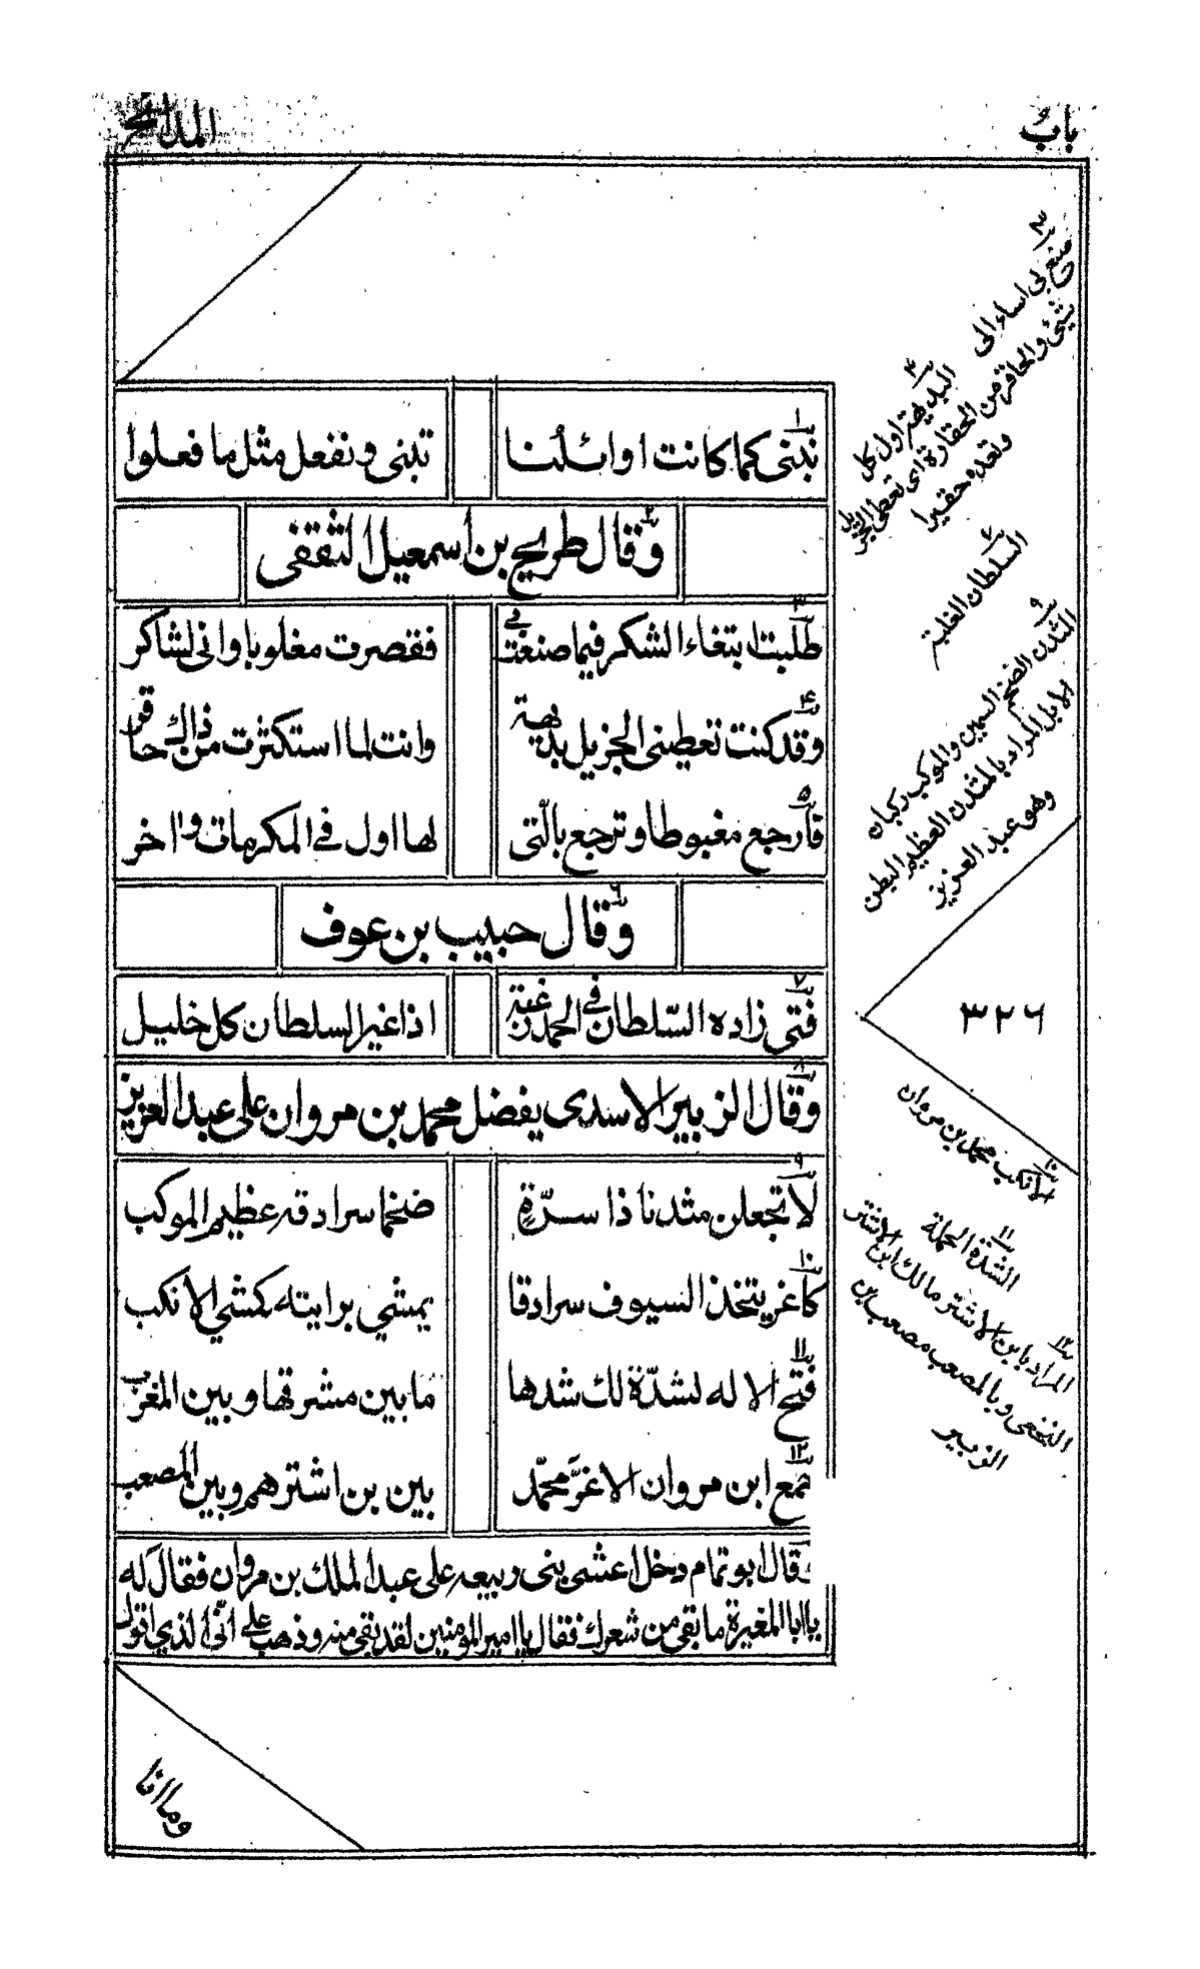 باب المدائح
نبنى كما كانت اوائلنا تبنى ونفعل مثل ما فعلوا
وقال طريح بن اسمعيل الثقفى
طلبت ابتغاء الشكر فيما صنعت فى فقصرت مغلوبا وانى لشاكر
وقد كنت تعطينى الجزيل بديهة وانت لما استكثرت من ذاك حاقر
فارجع مغبوطا وترجع بالتى لها اول فى المكرمات واخر
وقال حبيب بن عوف
فتى زاده السلطان فى الحمد رغبة اذا غير السلطان كل خليل
وقال الزبير الاسدى يفضل محمد بن مروان على عبد العزيز
لا تجعلن مثدنا ذا سرة ضخما سرادقه عظيم الموكب
كاغر يتخذ السيوف سرادقا يمشي برايته كمشي الانكب
فتح الاله لشدة لك شدها ما بين مشرقها وبين المغرب
جمع ابن مروان الاغر محمد بين بن اشترهم وبين المصعب
وقال ابو تمام دخل اعشى بنى ربيعه على عبد الملك بن مروان فقال له
يا ابا المغيرة ما بقى من شعرك فقال يا امير المؤمنين لقد بقى منه وذهب على انى الذي اقول
وما انا
٣
صنع بى اساء الى
٤
البديهة اول كل
شئ والحاقر من الحقارة اى تعطى الجزيل
وتعده حقيرا
٧
السلطان الغلبة
٩
المثدن الضخم السمين والموكب ركبان
الابل المراد بالمثدن العظيم البطن
وهو عبد العزيز
٣٢٦
١٠
الانكب محمد بن مروان
١١
الشدة الحملة
١٢
المراد بابن الاشتر مالك ابن الاشتر
النخعى وبالمصعب مصعب بن
الزبير